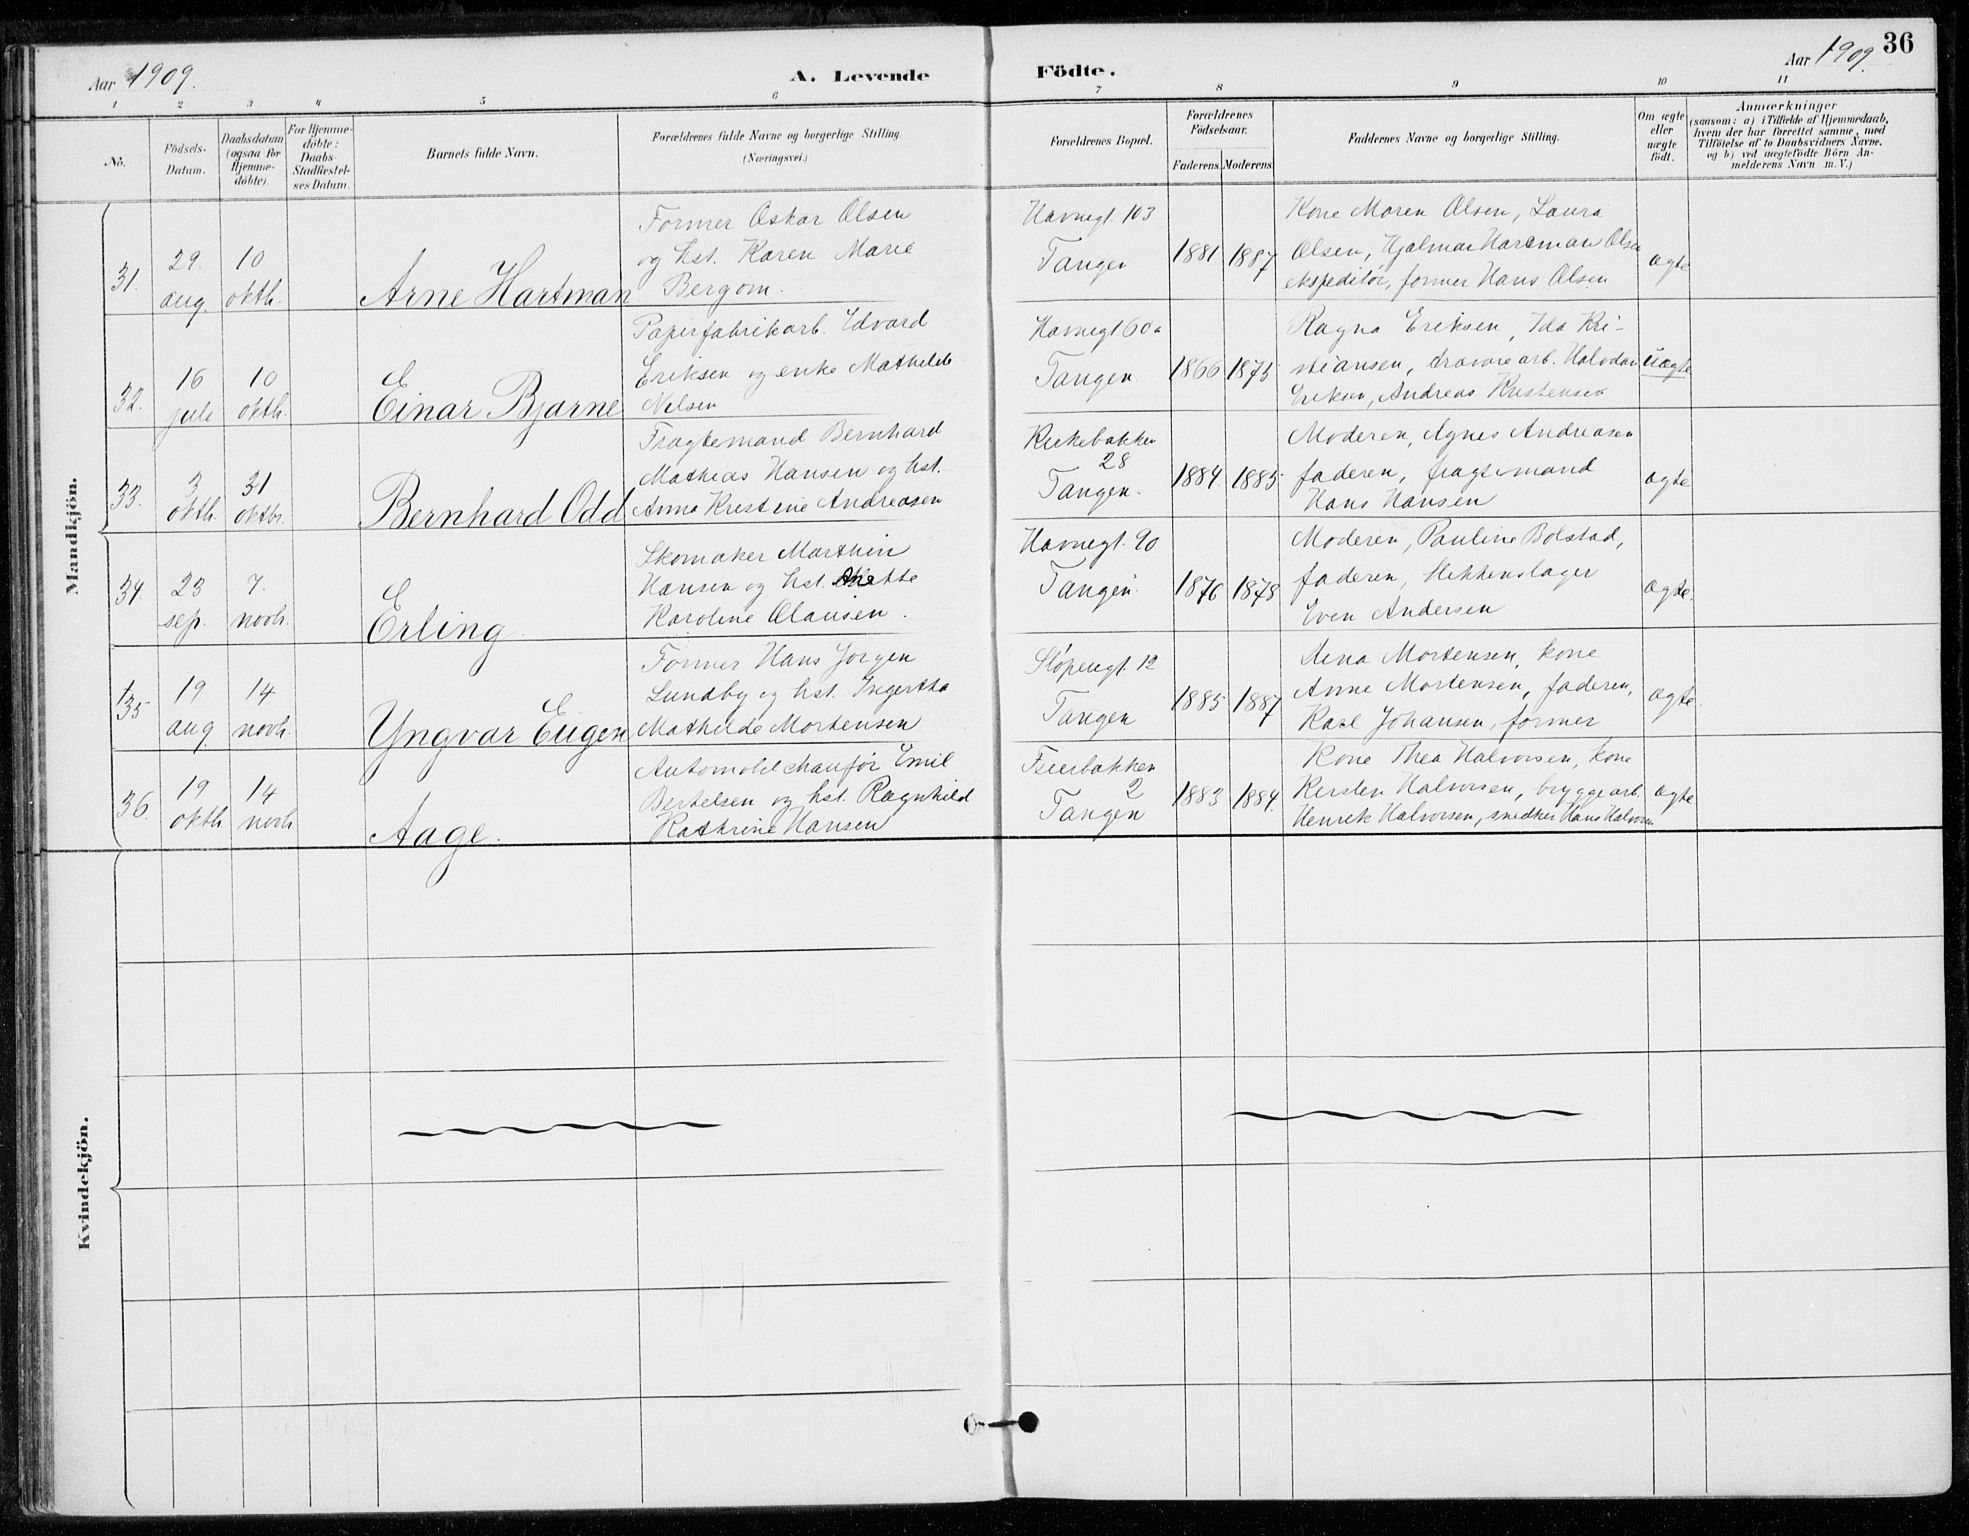 Aar 1909.
A. Levende Födte.
Aar 1909.
36
1 2 3 4 5 6 7 8 9 10 11
No.
Födsels-
Datum.
Daabsdatum
(ogsaa for
Hjemme-
döbte).
For Hjemme-
döbte:
Daabs-
Stadfæstel-
ses Datum.
Barnets fulde Navn.
Forældrenes fulde Navne og borgerlige Stilling.
(Næringsvei.)
Forældrenes Bopæl.
Forældrenes
Födselsaar.
Faderens Moderens
Faddernes Navne og borgerlige Stilling.
Om ægte
eller
uægte
födt.
Anmærkninger
(saasom: a) i Tilfælde af Hjemmedaab,
hvem der har forrettet samme, med
Tilföielse af to Daabsvidners Navne,
og b) ved uægtefödte Börn An-
melderens Navn m. V.)
Mandkjön.
31.
29.
aug.
10
oktb.
Arne Hartman
Former Oskar Olsen
og hst. Karen Marie
Bergom.
Havnegt. 103
Tangen
1881 1887
Kone Maren Olsen, Laura
Olsen, Hjalmar Hartman Olsen
ekspeditør, former Hans Olsen
ægte
32.
16
juli
10
oktb.
Einar Bjarne
Papirfabrikarb. Edvard
Eriksen og enke Mathilde
Nilsen
Havnegt 60a
Tangen.
1866 1875
Ragna Eriksen, Ida Kri-
stiansen, travarearb. Halvdan
Eriksen, Andreas Kristensen
uægte
33.
3
oktb.
31
oktbr.
Bernhard Odd
Fragtemand Bernhard
Mathias Hansen og hst.
Anna Kristine Andreasen
Kirkebakken
28
Tangen.
1884 1885
Moderen, Agnes Andreasen
faderen, fragtemand
Hans Hansen
ægte
34.
23
sep.
7.
novb.
Erling
Skomaker Marthin
Hansen og hst. Anette
Karoline Clausen.
Havnegt. 90
Tangen.
1876 1878
Moderen, Pauline Bolstad,
faderen, blikkenslager
Even Andersen
ægte.
35
19
aug.
14
novb.
Yngvar Eugen
Former Hans Jørgen
Lundby og hst. Ingertha
Mathilde Mortensen
Støperigt. 12
Tangen
1885 1887
Anna Mortensen, kone
Anne Mortensen, faderen,
Karl Johansen, former
ægte.
36.
19
oktb.
14
novb.
Aage.
Automobilchaufør Emil
Bertelsen og hst. Ragnhild
Kathrine Hansen
Feierbakken
2
Tangen
1883 1884.
Kone Thea Halvorsen, kone
Kirsten Halvorsen, bryggearb.
Henrik Halvorsen, snedker Hans Halvorsen
ægte
Kvindekjön.